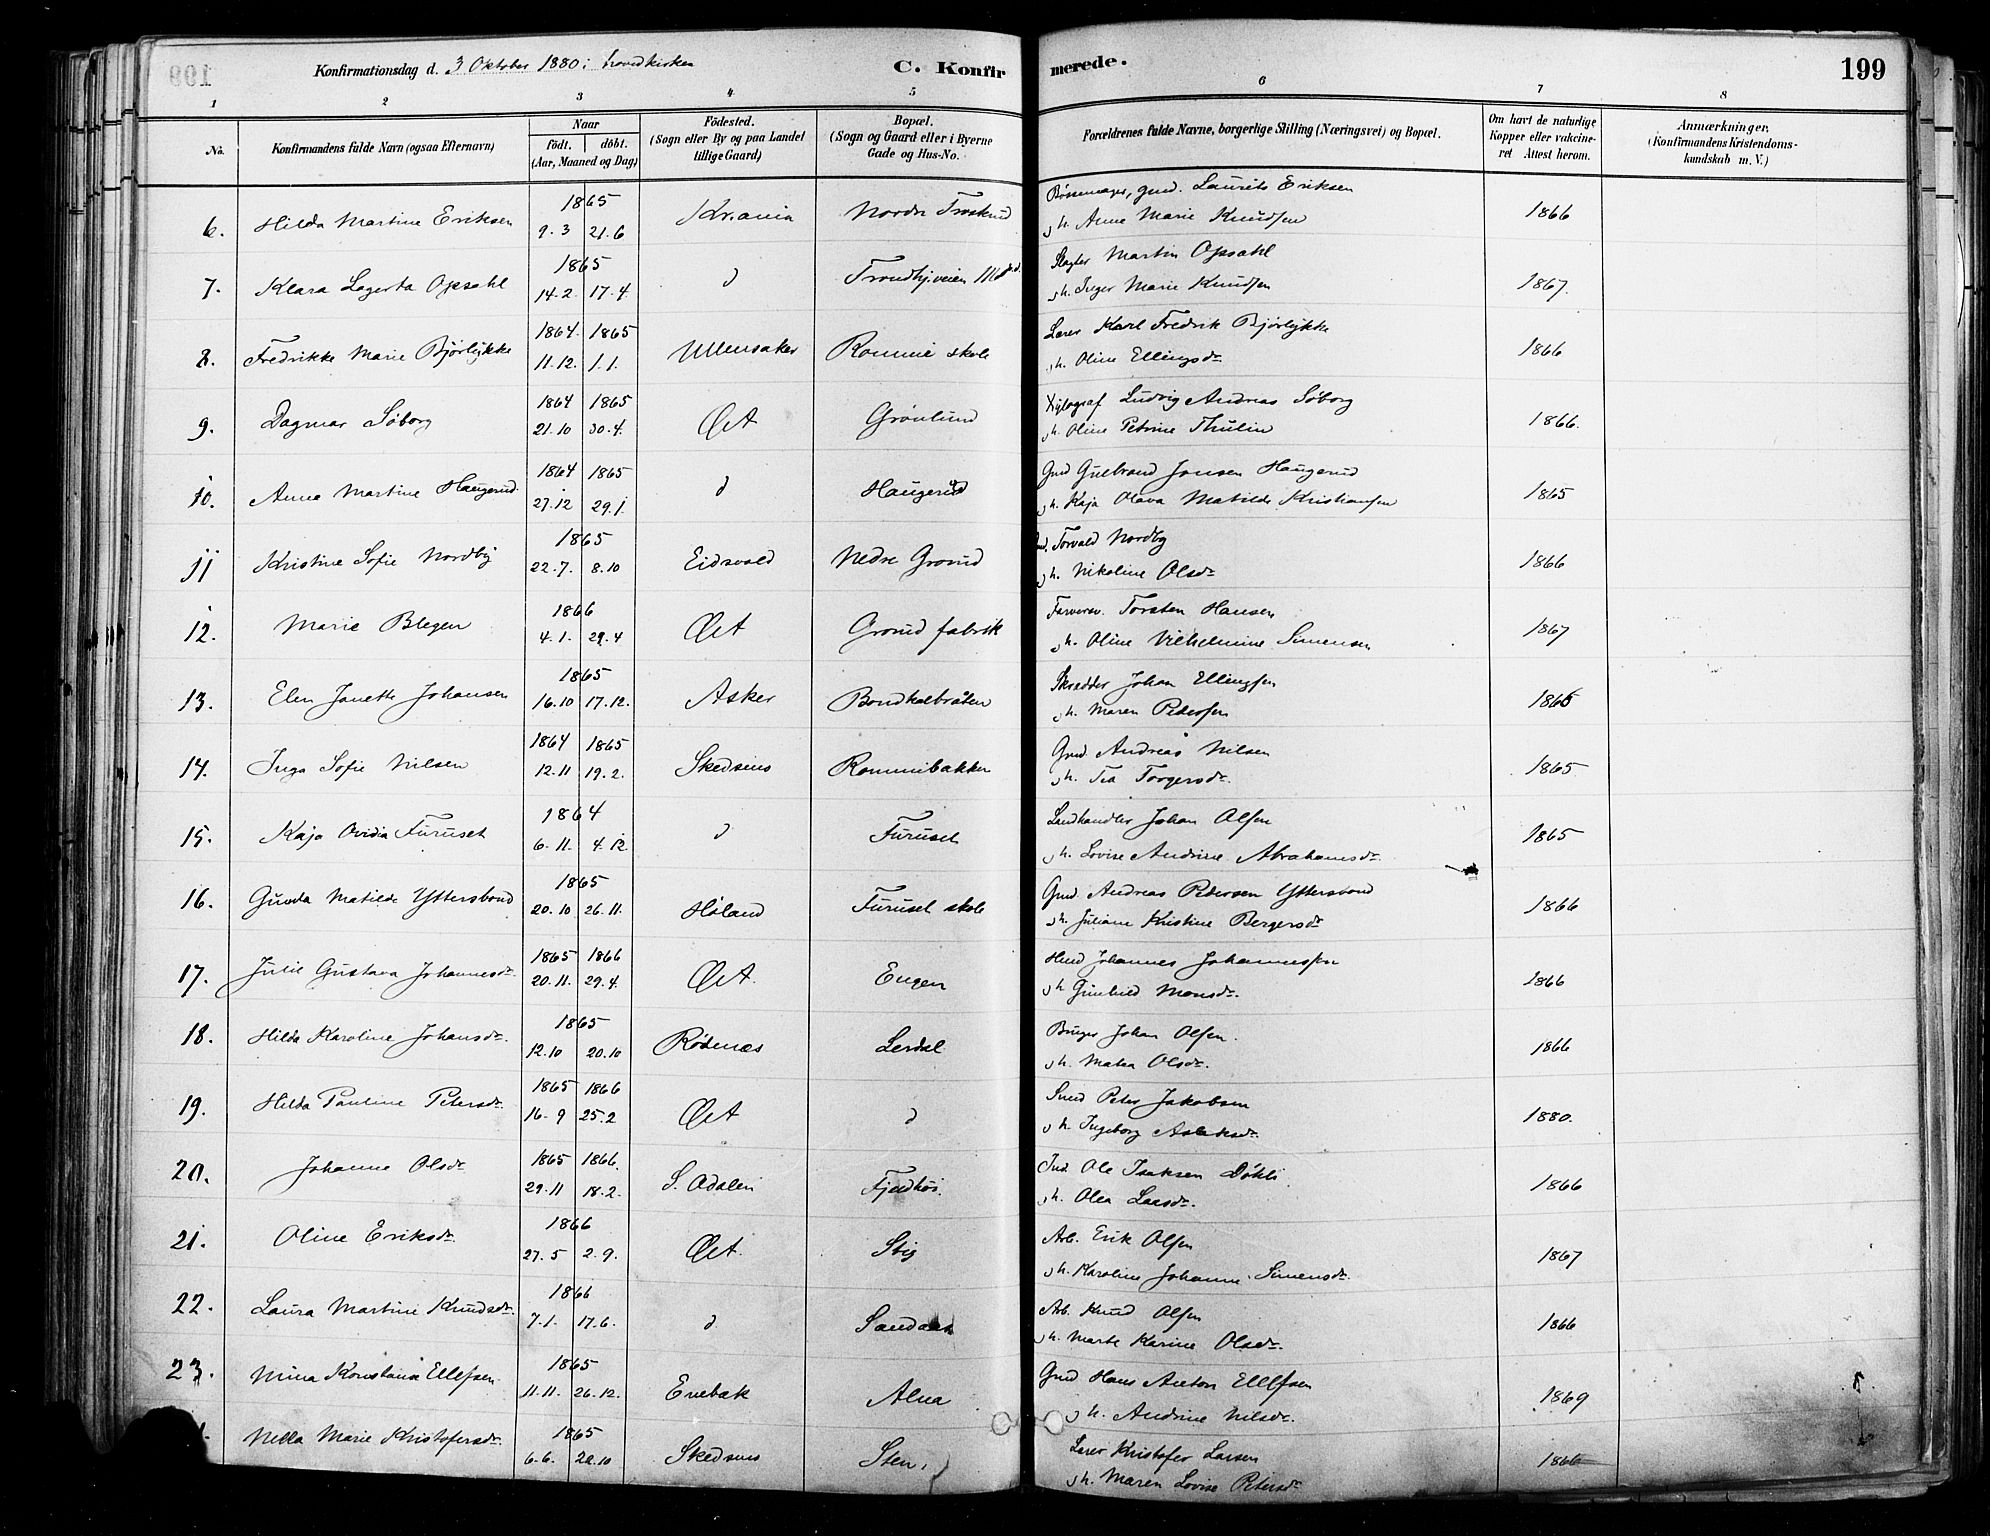 Konfirmationsdag d. 3 Oktober 1880 i hovedkirken C. Konfirmerede. 199
1 2 3 4 5 6 7 8
No. Konfirmandens fulde Navn (ogsaa Efternavn) Naar födt. döbt. (Aar, Maaned og Dag) Födested. (Sogn eller By og paa Landet tillige Gaard) Bopæl. (Sogn og Gaard eller i Byerne Gade og Hus-No. Forældrenes fulde Navne, borgerlige Stilling (Næringsvei) og Bopæl. Om havt de naturlige Kopper eller vakcineret Attest herom. Anmærkninger, (Konfirmandens Kristendomskundskab m. V.)
1865 Bössemager, gmd. Laurits Eriksen
6. Hilda Martine Eriksen 9.3 21.6 Kr.ania Nordre Troskrud 1866
h. Anne Marie Knudsen
1865 Slagter Martin Opsahl
7. Klara Lagerta Opsahl 14.2. 17.4. d Trondhj.veien 1867.
h. Inger Marie Knudsen
1864. 1865 Lærer Karl Fredrik Bjørlykke
8. Fredrikke Marie Bjørlykke 11.12. 1.1. Ullensaker Rommie skole 1866
h. Oline Ellingsdr
1864 1865 Xylograf Ludvig Andreas Søborg
9. Dagmar Søborg 21.10 30.4. ØA Grønlund 1866.
h. Oline Petrine Thulin
1864 1865 Gmd Gulbrand Jonsen Haugerud
10. Anna Martine Haugerud. 27.12 29.1. d Haugerud 1865
h. Kaja Olava Matilde Kristiansen
1865 Torvald Nordby
11 Kristine Sofie Nordby 22.7. 8.10 Eidsvold Nedre Grorud 1866
h. Nikoline Olsdr
1866 Farverarb. Torsten Hansen
12. Marie Blegen 4.1. 29.4 ØA Grorud fabrik 1867
h. Oline Vilhelmine Simensen
1865 Skrædder Johan Ellingsen
13. Elen Janette Johansen 16.10 17.12. Asker Bondkalbråten 1865
h. Maren Petersen
1864 1865 Gmd. Andreas Nilsen
14. Inga Sofie Nilsen 12.11 19.2. Skedsmo Rommibakken 1865
h. Tea Torgersdr.
1864 Landhandler Johan Olsen
15. Kaja Ovidia Furuset 6.11. 4.12. d Furuset 1865
h. Lovise Andrine Abrahamsdr.
1865 Gmd Andreas Petersen Yttersbond
16. Gunda Matilde Yttersbond 20.10 26.11. Høland Furuset skole 1866
h. Juliane Kristine Bergersdr
1865 1866 Hmd Johannes Johannessen
17. Julie Gustava Johannesdr. 20.11. 29.4. ØA. Engen 1866
h Gunhild Monsdr.
1865 Bruger Johan Olsen.
18. Hilda Karoline Johansdr. 12.10 20.10 Rødenæs Lerdal 1866
h. Matea Olsdr.
1865 1866 Smed Peter Jakobsen
19. Hilda Pauline Petersdr. 16.9 25.2 ØA d 1880.
h. Ingeborg Aslaksdr.
1865 1866. Ind. Ole Isaksen Døhli
20. Johanne Olsdr 29.11 18.2. S. Odalen Fjeldhøi. 1866
h. Olea Larsdr.
1866 Arb. Erik Olsen
21. Oline Eriksdr. 27.5 2.9. ØA. Stig 1867
h. Karoline Johanne Simensdr.
1866 Arb. Knud Olsen
22. Laura Martine Knudsdr. 7.1. 17.6. d Sandaas 1866
h. Marte Karine Olsdr.
1865 Gmd Hans Anton Ellefsen
23. Mina Konstance Ellefsen 11.11. 26.12. Enebak Alna 1869
h. Andrine Nilsdr.
1865 Lærer Kristofer Larsen
Nella Marie Kristofersdr. 6.6. 22.10 Skedsmo Sten. 1866
h. Maren Lovise Petersdr